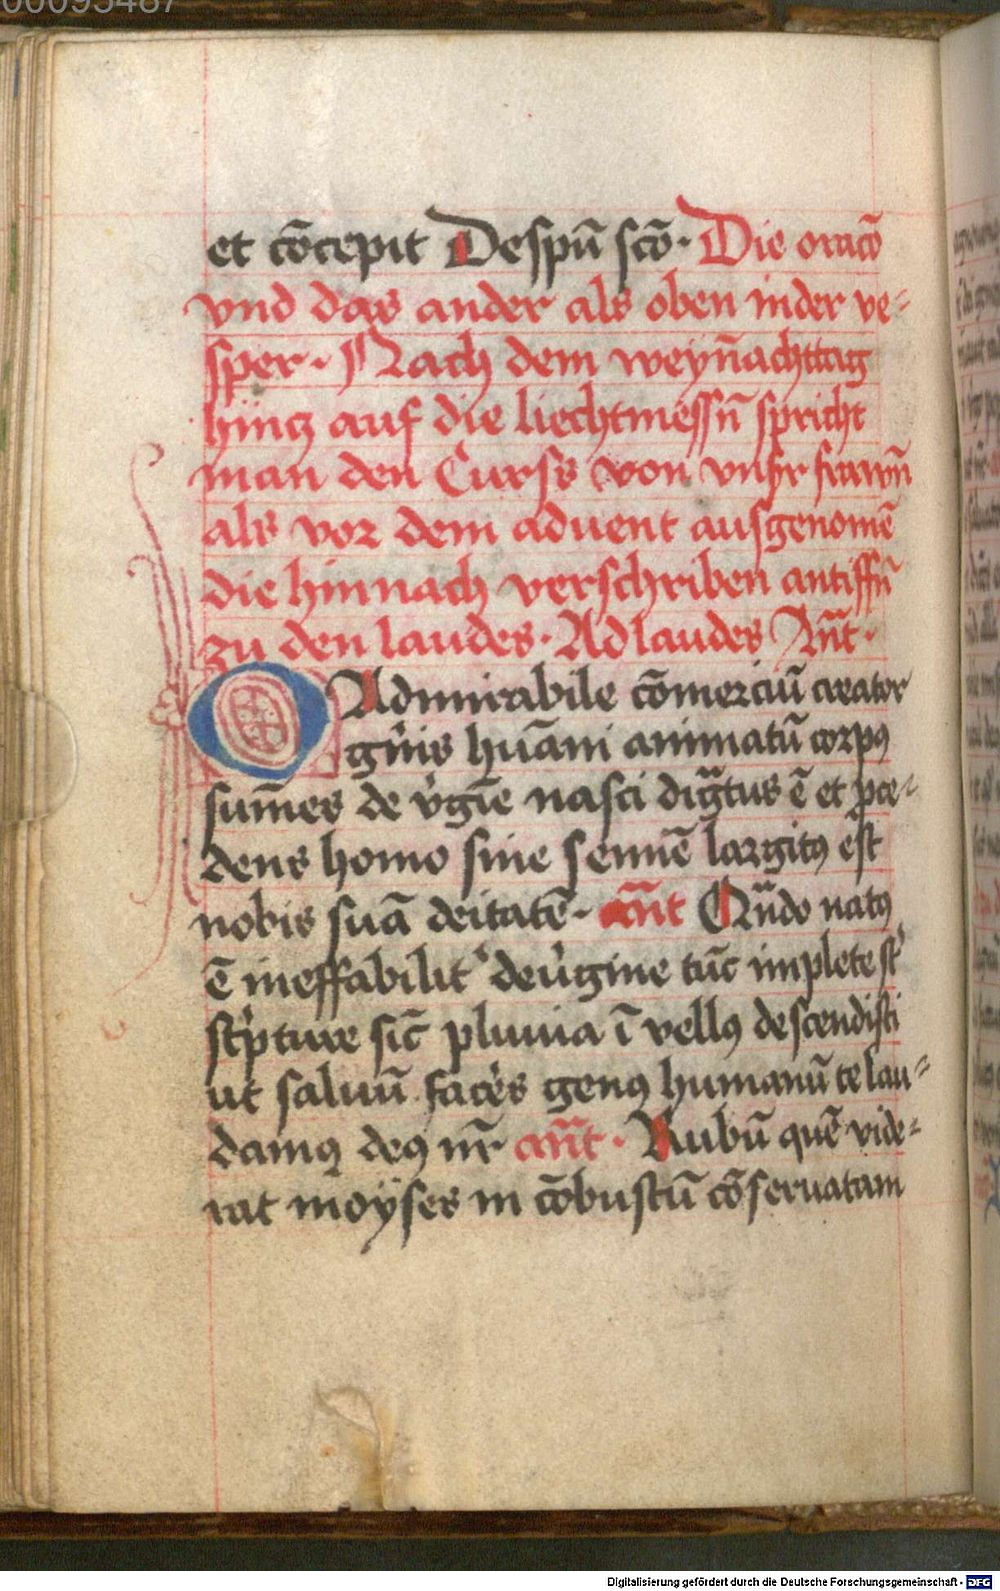 00095487
et cōcepit Despū scō. Die oracō
vnd das ander als oben inder ve-
sper. Nach dem weyn̄achttag
hincz auf die liechtmessn̄ spricht
man den Curss von vnsr frawn̄
als vor dem aduent ausgenomē
die hinnach verschriben antiffn̄
zu den laudes. Ad laudes An̄t.
O Admirabile cōmerciū creator
gn̄is hūani animatū corpꝯ
sum̄es de v̓gīe nasci dig̃tus ē et pce-
dens homo sine semīe largitꝯ ēst
nobis suā deitatē. an̄t Qn̄do natꝯ
ē ineffabilit̓ dev̓gine tūc implete st̓
sc̓pture sic̄ pluuia ī vellꝯ descendisti
ut saluū faceēs genꝯ humanū te lau-
damꝯ deꝯ nr̄ an̄t. Rubū quē vide-
rat moÿses in cōbustū cōseruatam
Digitalisierung gefördert durch die Deutsche Forschungsgemeinschaft - DFG